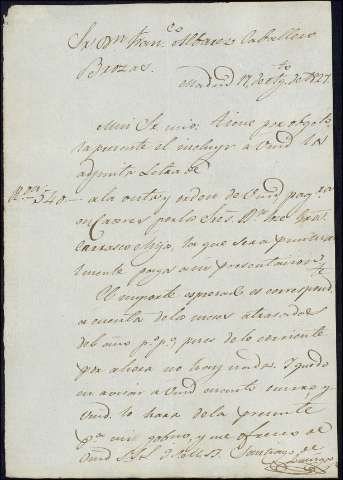 Sr. Dn. Franco. Albarez Caballero
Brozas.
Madrid 17 de Ag.to de 1827
Mui Sr. mio: tiene por objeto
la presente el incluyr a Vmd la
adjunta Letra de
Rs. vn. 540 a la vista y orden de Vmd pag.ra
en Caceres por los Sres. Dn.
Carrasco e hijo, la que sera puntual
mente paga a su presentacion
El importe espresado es correspond.
a cuenta de los meses atrasados
del año p.o p.o pues de lo corriente
por ahora no hay nada. Quedo
en avisar a Vmd cuanto ocurra, y
Vmd. lo hara de la presente
pa. mi gobno, y me ofrezco de
Vmd S. S. Santiago de